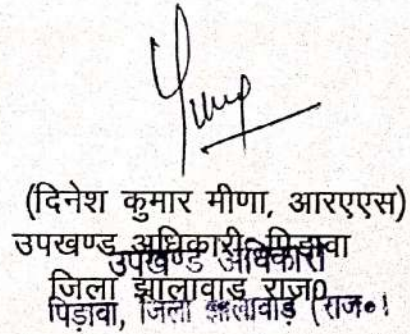 (दिनेश कुमार मीणा, आरएएस)
उपखण्ड अधिकारी, पिड़ावा
उपखण्ड अधिकारी
जिला झालावाड़ राज0
पिड़ावा, जिला झालावाड़ (राज०)